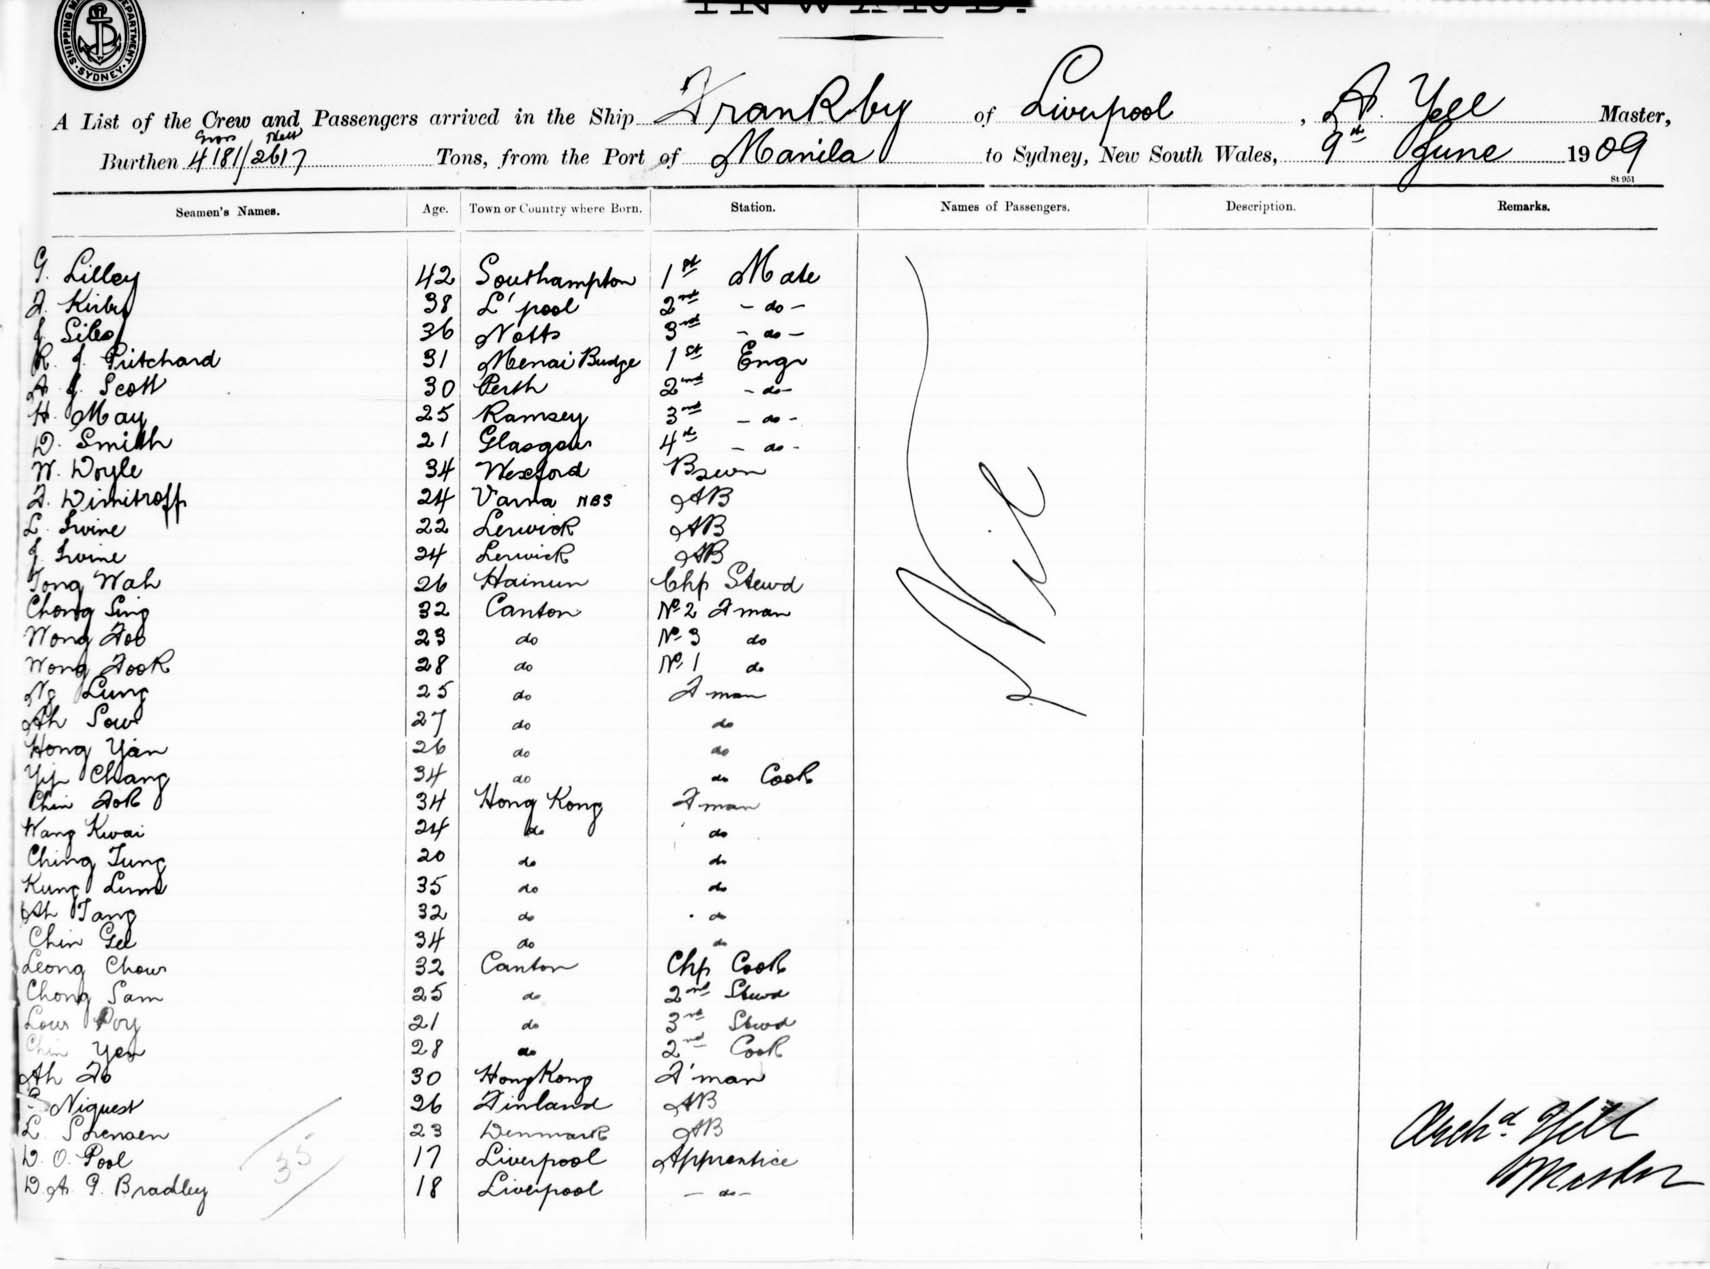 INWARD.
SHIPPING DEPARTMENT SYDNEY
A List of the Crew and Passengers arrived in the Ship Frankby of Liverpool, A. Yell Master,
Gross Nett
Burthen 4181/2617 Tons, from the Port of Manila to Sydney, New South Wales, 9th June 1909
St 951
Seamen's Names. Age. Town or Country where Born. Station. Names of Passengers. Description. Remarks.
G. Lilley 42 Southampton 1st Mate
F. Kirby 38 L'pool 2nd - do -
J. Siles 36 Notts 3rd - do -
R. J. Pritchard 31 Menai Bridge 1st Engr
A. J. Scott 30 Perth 2nd - do -
H. May 25 Ramsey 3rd - do -
D. Smith 21 Glasgow 4th - do -
W. Doyle 34 Wexford Bswn
F. Dimitroff 24 Varna NBS AB
L. Irvine 22 Lerwick AB
J. Irvine 24 Lerwick AB
Nil
Tong Wah 26 Hainun Chp Stewd
Chong Sing 32 Canton No 2 Fman
Wong Foo 23 do No 3 do
Wong Fook 28 do No 1 do
Ng Lung 25 do Fman
Ah Sow 27 do do
Hong Yan 26 do do
Yip Chang 34 do do Cook
Chin Fok 34 Hong Kong Fman
Wang Kwai 24 do do
Ching Tung 20 do do
Kung Lum 35 do do
Ah Tang 32 do do
Chin Gee 34 do do
Leong Chow 32 Canton Chp Cook
Chong Sam 25 do 2nd Stewd
Low Poy 21 do 3rd Stwd
Chin Yen 28 do 2nd Cook
Ah Fo 30 Hong Kong F'man
Niquest 26 Finland AB
L. Sorensen 23 Denmark AB
D. O. Pool 17 Liverpool Apprentice
D. A. G. Bradley 18 Liverpool - do -
35
Archd Yell
Master